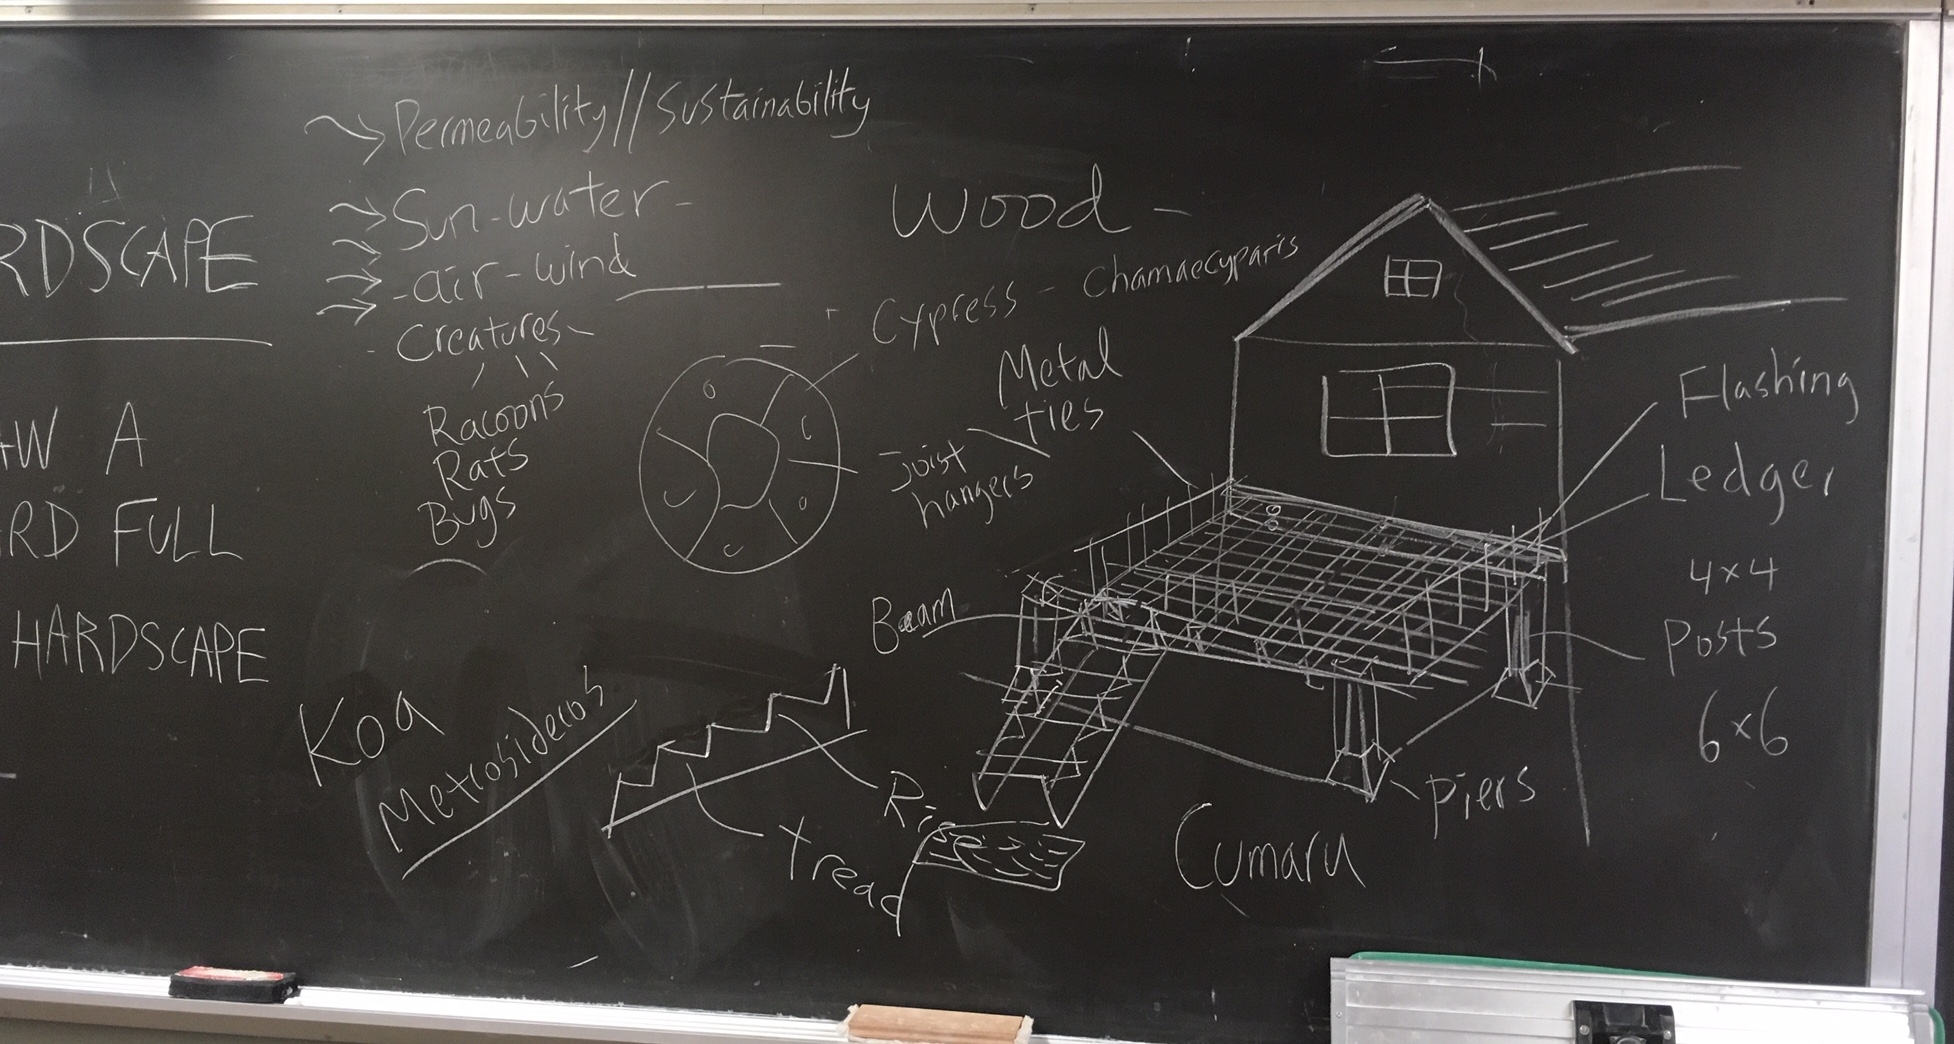 RDSCAPE
W A
RD FULL
HARDSCAPE
Permeability//Sustainability
Sun-water-
-air-wind
- Creatures-
Racoons
Rats
Bugs
Koa
Metrosideros
Rise
Tread
Wood -
Cypress - Chamaecyparis
Metal
ties
Joist
hangers
Beam
Cumaru
Flashing
Ledger
4x4
Posts
6x6
Piers